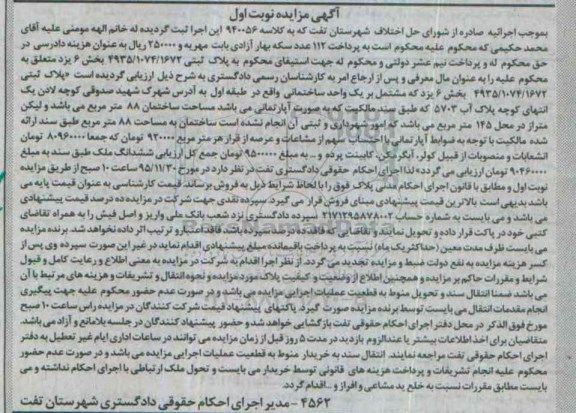 آگهی مزایده نوبت اول
بموجب اجرائیه صادره از شورای حل اختلاف شهرستان تفت که به کلاسه ۹۴۰۰۵۶ این اجرا ثبت گردیده له خانم الهه مومنی علیه آقای
محمد حکیمی که محکوم علیه محکوم است به پرداخت ۱۱۲ عدد سکه بهار آزادی بابت مهریه و ۲۵۰۰۰۰ ریال به عنوان هزینه دادرسی در
حق محکوم له و پرداخت نیم عشر دولتی و محکوم له جهت استیفای محکوم به پلاک ثبتی ۴۹۳۵/۱۰۷۴/۱۶۷۲ بخش ۶ یزد متعلق به
محکوم علیه را به عنوان مال معرفی و پس از ارجاع امر به کارشناسان رسمی دادگستری به شرح ذیل ارزیابی گردیده است «پلاک ثبتی
۴۹۳۵/۱۰۷۴/۱۶۷۲ بخش ۶ یزد که مشتمل بر یک واحد ساختمانی واقع در طبقه اول به آدرس شهرک شهید صدوقی کوچه لادن یک
انتهای کوچه پلاک آب ۵۷۰۳ که طبق سند مالکیت که به صورت آپارتمانی می باشد مساحت ساختمان ۸۸ متر مربع می باشد و لیکن
متراز در محل ۱۴۵ متر مربع می باشد که امور شهرداری و ثبتی آن انجام نشده است ساختمان به مساحت ۸۸ متر مربع طبق سند ارائه
شده مالکیت با توجه به ضوابط آپارتمانی با احتساب سهم از مشاعات و عرصه از قرار هر متر مربع ۹۲۰۰۰۰ تومان که جمعا ۸۰۹۶۰۰۰۰ تومان
انشعابات و منصوبات از قبیل کولر، آبگرمکن، کابینت پرده و ... به مبلغ ۹۵۰۰۰۰۰ تومان جمع کل ارزیابی ششدانگ ملک طبق سند به مبلغ
۹۰۴۶۰۰۰۰ تومان ارزیابی می گردد» لذا اجرای احکام حقوقی دادگستری تفت در نظر دارد در مورخ ۹۵/۱۱/۳۰ ساعت ۱۰ صبح از طریق مزایده
نوبت اول و مطابق با قانون اجرای احکام مدنی پلاک فوق را با لحاظ شرایط ذیل به فروش برساند. قیمت کارشناسی به عنوان قیمت پایه می
باشد بدیهی است بالاترین قیمت پیشنهادی مبنای فروش قرار می گیرد. سپرده نقدی جهت شرکت در مزایده ده درصد قیمت پیشنهادی
می باشد و می بایست به شماره حساب ۲۱۷۱۲۹۵۸۷۸۰۰۲ سپرده دادگستری نزد شعب بانک ملی واریز و اصل فیش را به همراه تقاضای
کتبی خود در پاکت قرار داده و تحویل نمایند و تقاضایی که فاقد ده درصد می باشد، فاقد اعتبار و ترتیب اثر داده نخواهد شد. برنده مزایده
می بایست ظرف مدت معین (حداکثر یک ماه) نسبت به پرداخت باقیمانده مبلغ پیشنهادی اقدام نماید در غیر این صورت سپرده وی پس از
کسر هزینه مزایده به نفع دولت ضبط و مزایده تجدید می گردد. از نظر اجرا اقدام به شرکت در مزایده به معنی اطلاع و رعایت کامل و قبول
شرایط و مقررات حاکم بر مزایده و همچنین اطلاع از وضعیت و کیفیت پلاک مورد مزایده و نحوه انتقال و تشریفات و هزینه های مرتبط با آن
می باشد ضمنا انتقال سند و تحویل منوط به قطعیت عملیات اجرایی مزایده می باشد و در صورت عدم حضور محکوم علیه جهت پیگیری
انجام مقدمات انتقال می بایست توسط برنده مزایده صورت گیرد. پاکتهای پیشنهاد قیمت شرکت کنندگان در مزایده راس ساعت ۱۰ صبح
مورخ فوق الذکر در محل دفتر اجرای احکام حقوقی تفت بازگشایی خواهد شد و حضور پیشنهاد کنندگان در جلسه بلامانع و آزاد می باشد.
متقاضیان برای اخذ اطلاعات بیشتر یا عندالزوم بازدید در مدت ۵ روز قبل از زمان مزایده می توانند در ساعات اداری ایام غیر تعطیل به دفتر
اجرای احکام حقوقی تفت مراجعه نمایند. انتقال سند به خریدار منوط به قطعیت عملیات اجرایی مزایده می باشد و در صورت عدم حضور
محکوم علیه انجام تشریفات و پرداخت هزینه های قانونی توسط خریدار می بایست و تحویل ملک ارتباطی با اجرای احکام نداشته و می
بایست مطابق مقررات نسبت به خلع ید مشاعی و افراز و ...اقدام گردد.
۴۵۶۲ - مدیر اجرای احکام حقوقی دادگستری شهرستان تفت